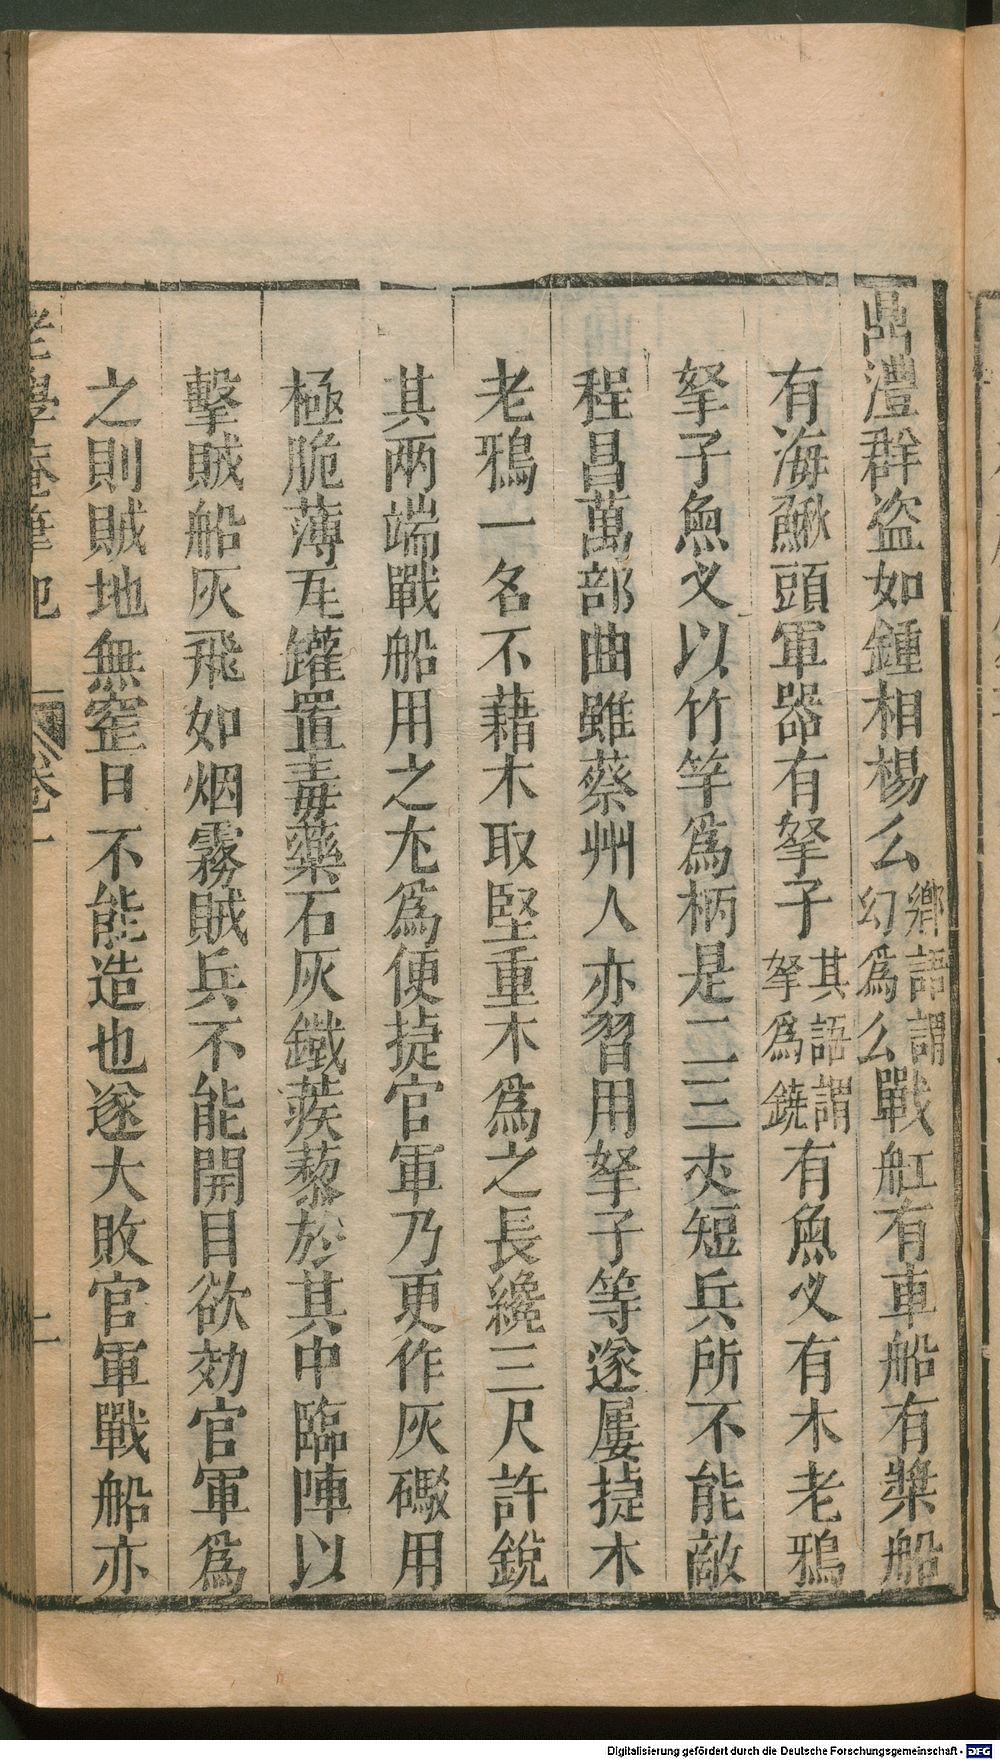 鼎澧群盗如鍾相楊么鄉語謂幻爲么戰舡有車船有槳船
有海鰍頭軍器有拏子其語謂拏爲鐃有魚叉有木老鴉
拏子魚叉以竹竿爲柄是二三丈短兵所不能敵
程昌萬部曲雖蔡州人亦習用拏子等遂屢捷木
老鴉一名不藉木取堅重木爲之長纔三尺許銳
其两端戰船用之尤爲便捷官軍乃更作灰礟用
極脆薄瓦罐置毒藥石灰鐵蒺藜於其中臨陣以
擊賊船灰飛如烟霧賊兵不能開目欲効官軍爲
之則賊地無窑日不能造也遂大敗官軍戰船亦
老學庵筆記 卷一 二
Digitalisierung gefördert durch die Deutsche Forschungsgemeinschaft - DFG